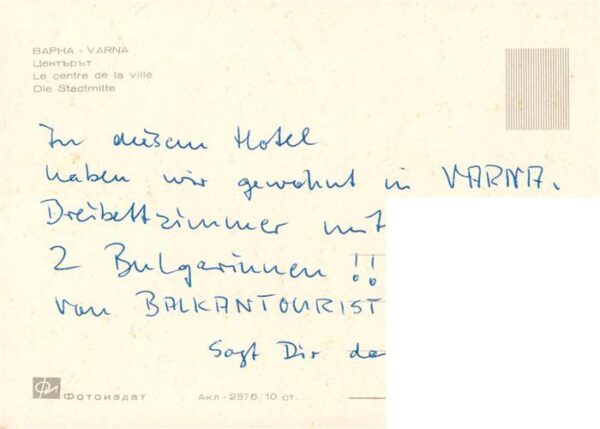 ВАРНА - VARNA
Центърът
Le centre de la ville
Die Stadtmitte
In diesem Hotel
haben wir gewohnt in VARNA.
Dreibettzimmer mit
2 Bulgarinnen !!
von BALKANTOURIST
Sagt Dir da
Фотоиздат Акл - 2376 10 ст.